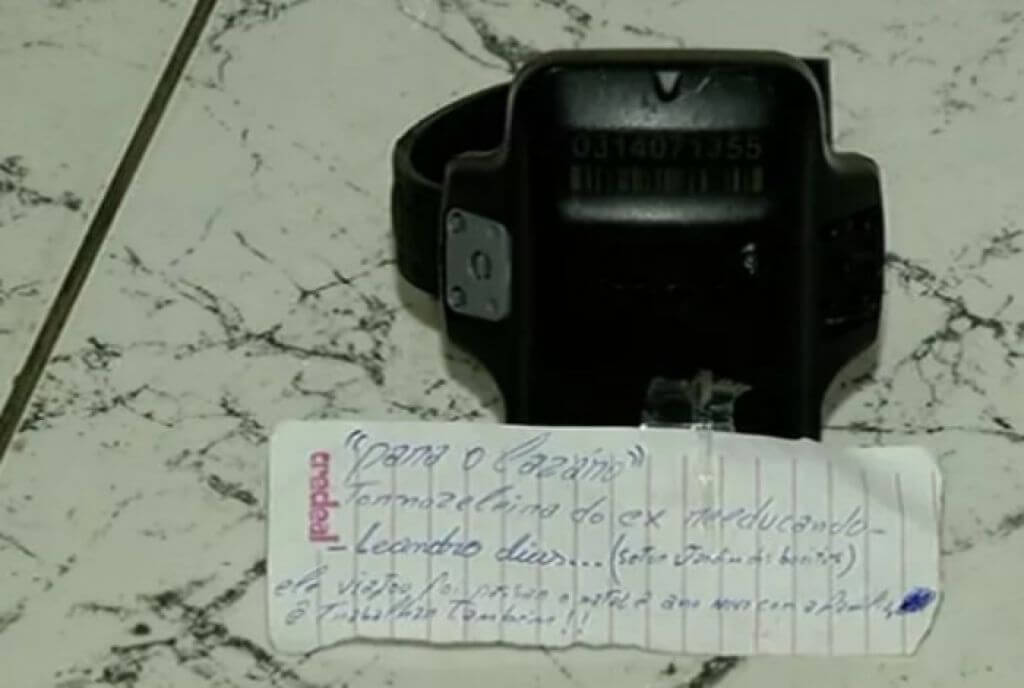 0314071355
credeal
"para o Lazário"
Tornozeleira do ex reeducando -
- Leandro dias... (Setor Jardim das
ele viajou, foi passar o natal e ano novo com a família
e Trabalhar Também!!